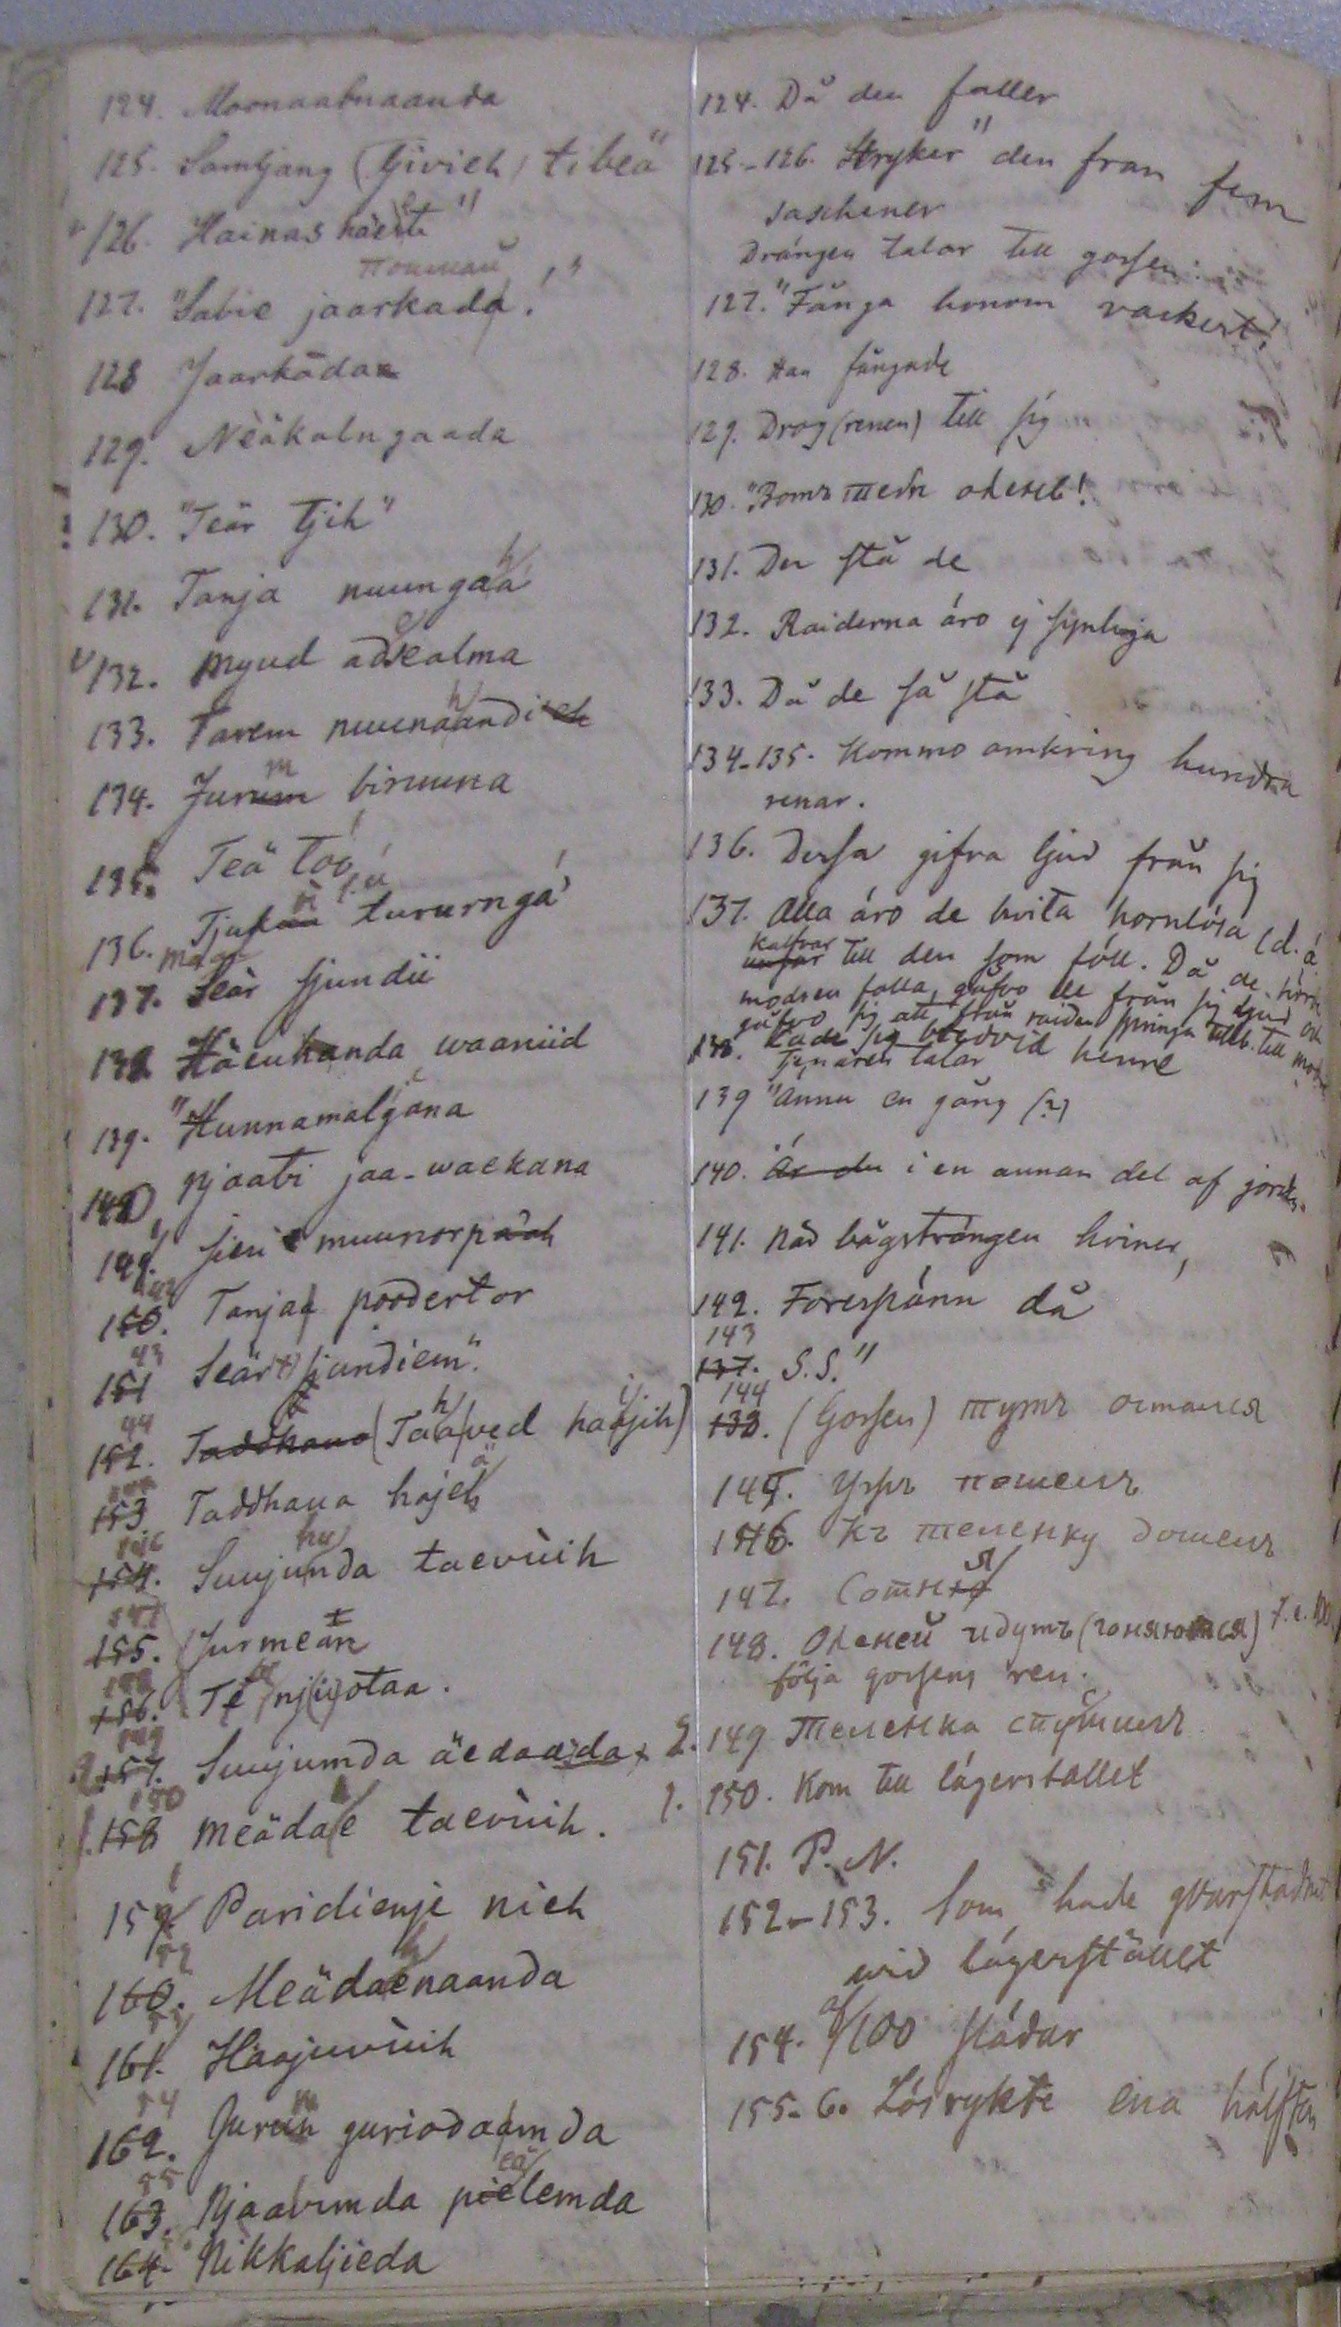 124. Moonaabnaanda
125. Samljang (Tjivieh) tibeä"
126. Hainas häeite"
поймай
127. "Sabie jaarkada!"
128 Jaarkäda
129. Neäkalngaada
130. "Teär tjih"
131. Tanja nuungaa
132. Myud adsealma
133. Tarem nuunaandi
134. Jurum birnuuna
135. Teä too
136. Tjukaa tururngá
137. Seär sjundii
138 Häeuhanda waaniid
139. "Hunnamalgana
140 Njaabi jaa-waekana
141. Sieu muunorpäah
142 Tanjaa poodertor
143 Seär sjundiem".
144 Taddhana (Taaved haajih)
Taddhana hajeh
Suujunda taevüih
147 Jurmeän
Te njuotaa.
149 Suujumda äedaada 2.
150 Meädae taevüih. 1.
151 Paridienje nieh
52 Meädaenaanda
161. Haajuvüih
54 162. Jurun guriodaamda
55 163. Njaavimda pielemda
164. Nikkaljieda
124. Då den faller
125-126. Stryker" den fran fem
saschener
Drängen talar till gossen:
127. "Fånga honom vackert!
128. Han fångade
129. Drog (renen) till sig
130. "Вотъ твой олень!
131. Der stå de
132. Raiderna äro ej synliga
133. Då de så stå
134-135. Kommo omkring hundra
renar.
136. Dessa gifva ljud från sig
137. Alla äro de hvita hornlösa (d.ä
kalfvar till den som föll. Då de hörde
modren falla, gåfvo de från sig ljud och
gåfvo sig att från raiden springa till
138. Lade sig bredvid henne
Tjenaren talar
139 "Ännu en gång (?)
140. Är du i en annan del af jorden
141. När bågsträngen hviner,
142. Forespänn då
143
137. S.S."
144
138. (Gossen) тутъ остался
145. Ушъ пошелъ
146. Къ теленку дошелъ
147. Сотня
148. Оленей идутъ (гоняются)
följa gossens ren.
149 Теленка спустилъ
150. Kom till lägerstället
151. P. N.
152-153. Som hade qvarstadnat
wid lägerstället
154. af 100 slädar
155-6. Lösryckte ena hälften